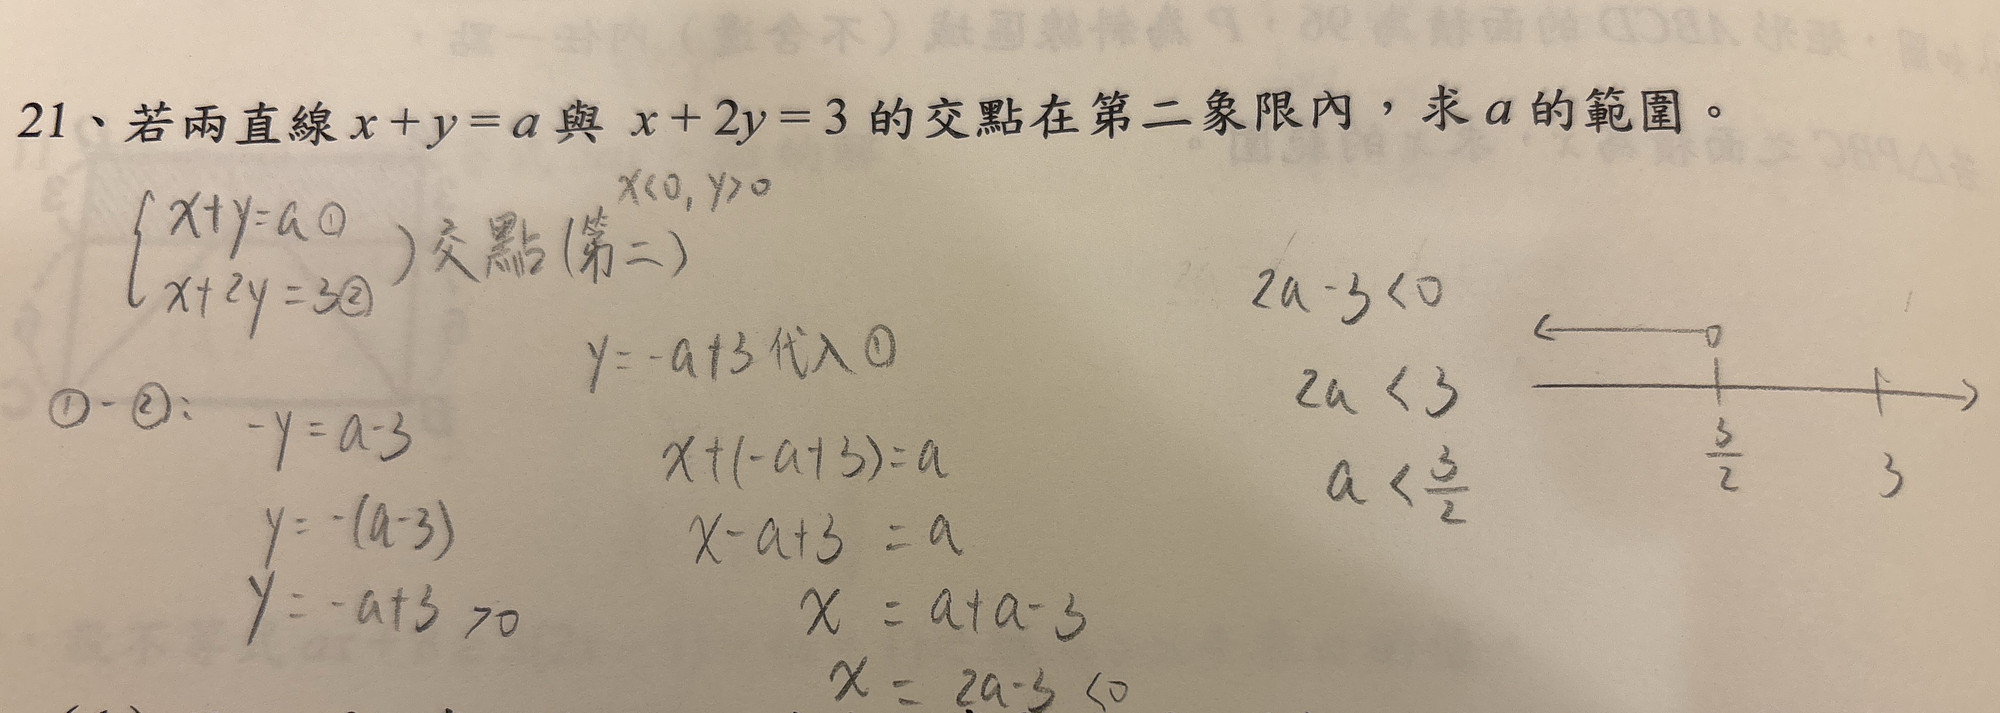 21、若兩直線 x + y = a 與 x + 2y = 3 的交點在第二象限內，求 a 的範圍。
x<0, y>0
x+y=a①
x+2y=3②
)交點(第二)
①-②:
-y=a-3
y=-(a-3)
y=-a+3 >0
y=-a+3代入①
x+(-a+3)=a
x-a+3 = a
x = a+a-3
x = 2a-3 <0
2a-3<0
2a<3
a<3/2
3/2
3